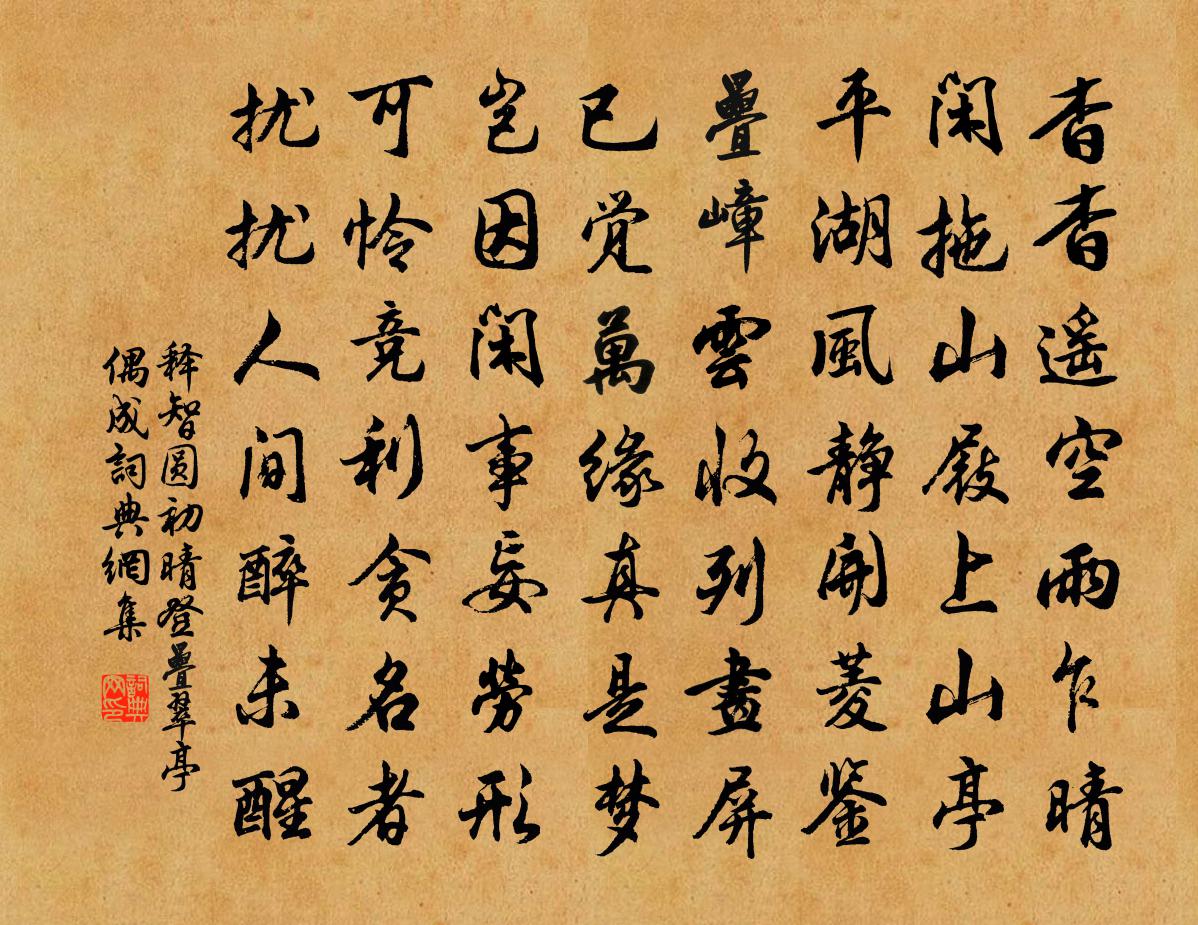 杳杳遥空雨乍晴
闲拖山屐上山亭
平湖風静開菱鉴
疊嶂雲收列畫屏
已觉萬緣真是梦
岂因闲事妄勞形
可怜竞利贪名者
扰扰人间醉未醒
释智圆初晴登疊翠亭
偶成詞典網集
詞典网印